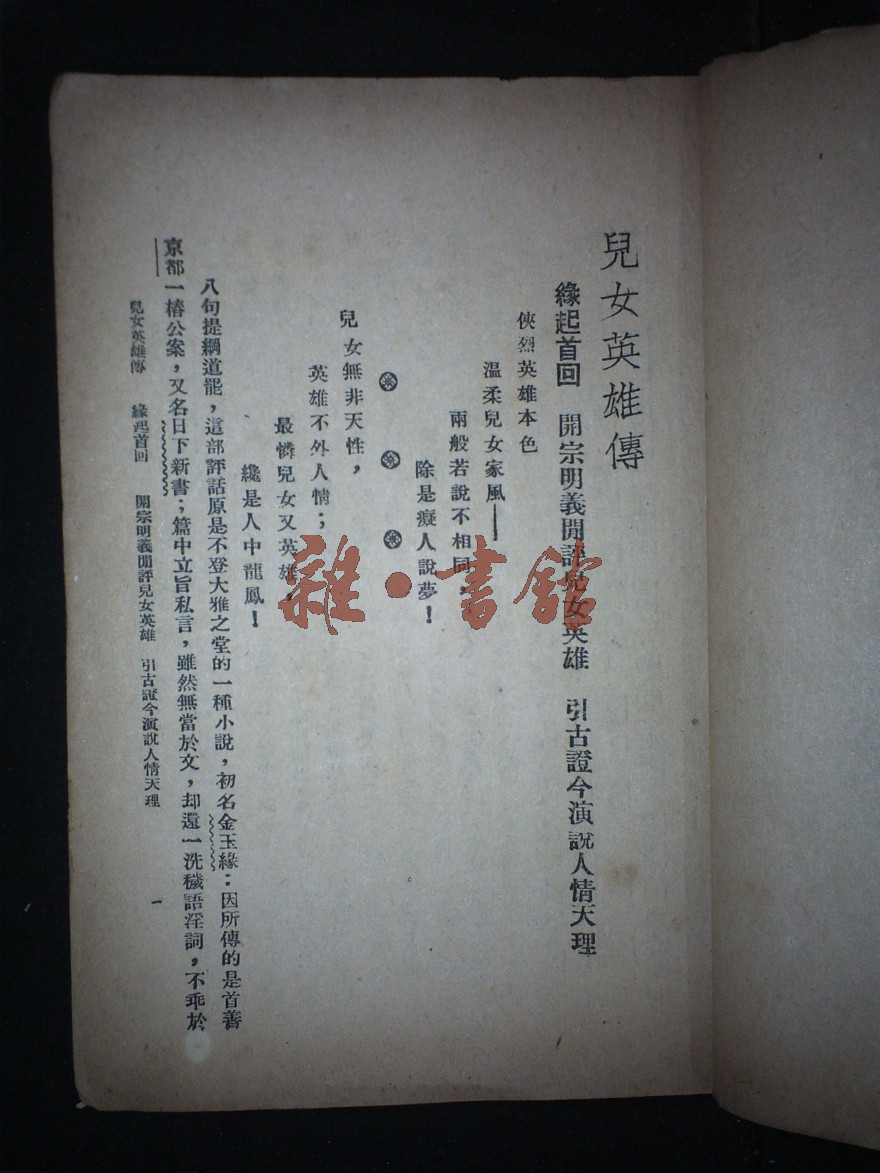 兒女英雄傳
緣起首回　開宗明義閒評兒女英雄　引古證今演說人情天理
俠烈英雄本色
溫柔兒女家風——
兩般若說不相同，
除是癡人說夢！
兒女無非天性，
英雄不外人情；
最憐兒女又英雄，
纔是人中龍鳳！
八句提綱道罷，這部評話原是不登大雅之堂的一種小說，初名金玉緣：因所傳的是首善
京都一椿公案，又名日下新書；篇中立旨私言，雖然無當於文，却還一洗穢語淫詞，不乖於
兒女英雄傳　緣起首回　開宗明義閒評兒女英雄　引古證今演說人情天理
一
雜·書館